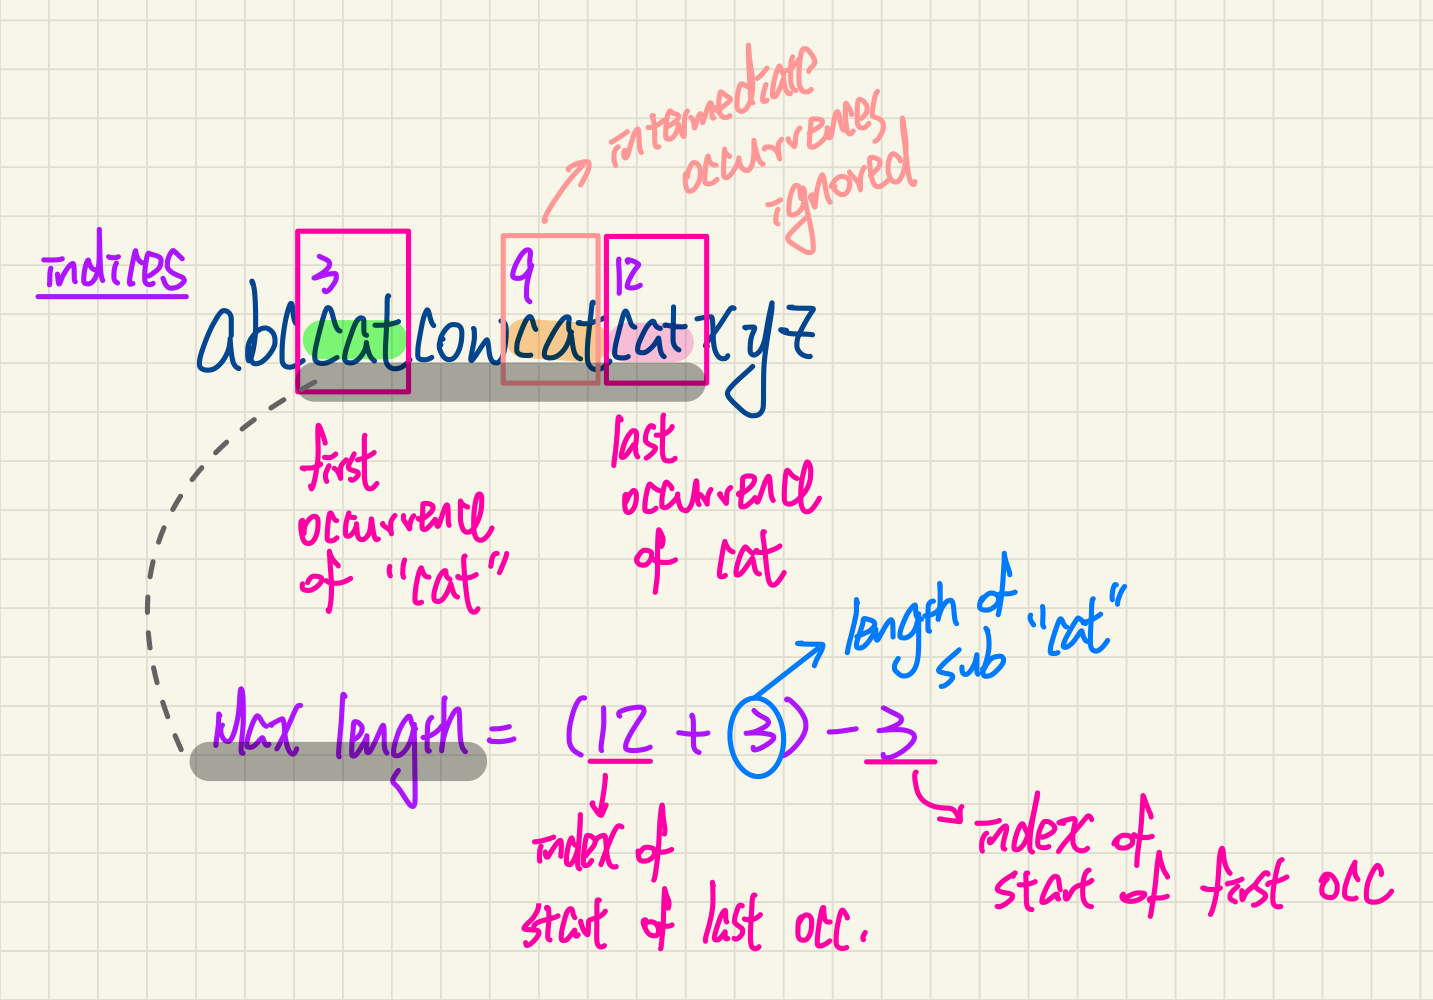 intermediate
occurrences
ignored
indices
3 9 12
abccatcowcatcatxyz
first
occurrence
of "cat"
last
occurrence
of cat
length of
sub "cat"
Max length = (12 + 3) - 3
index of
start of last occ.
index of
start of first occ